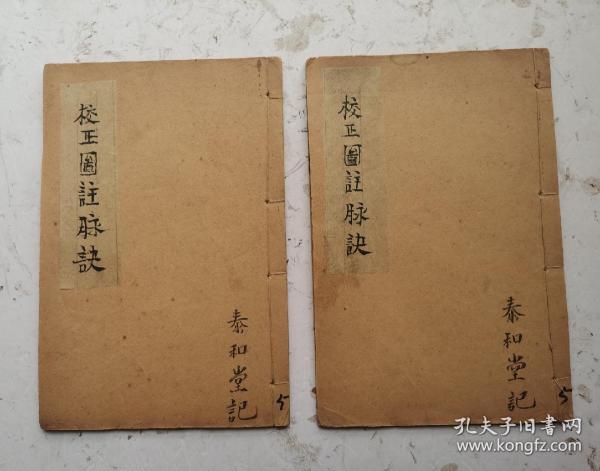 校正圖註脉訣
泰和堂記
5
校正圖註脉訣
泰和堂記
5
孔夫子旧书网
www.kongfz.com